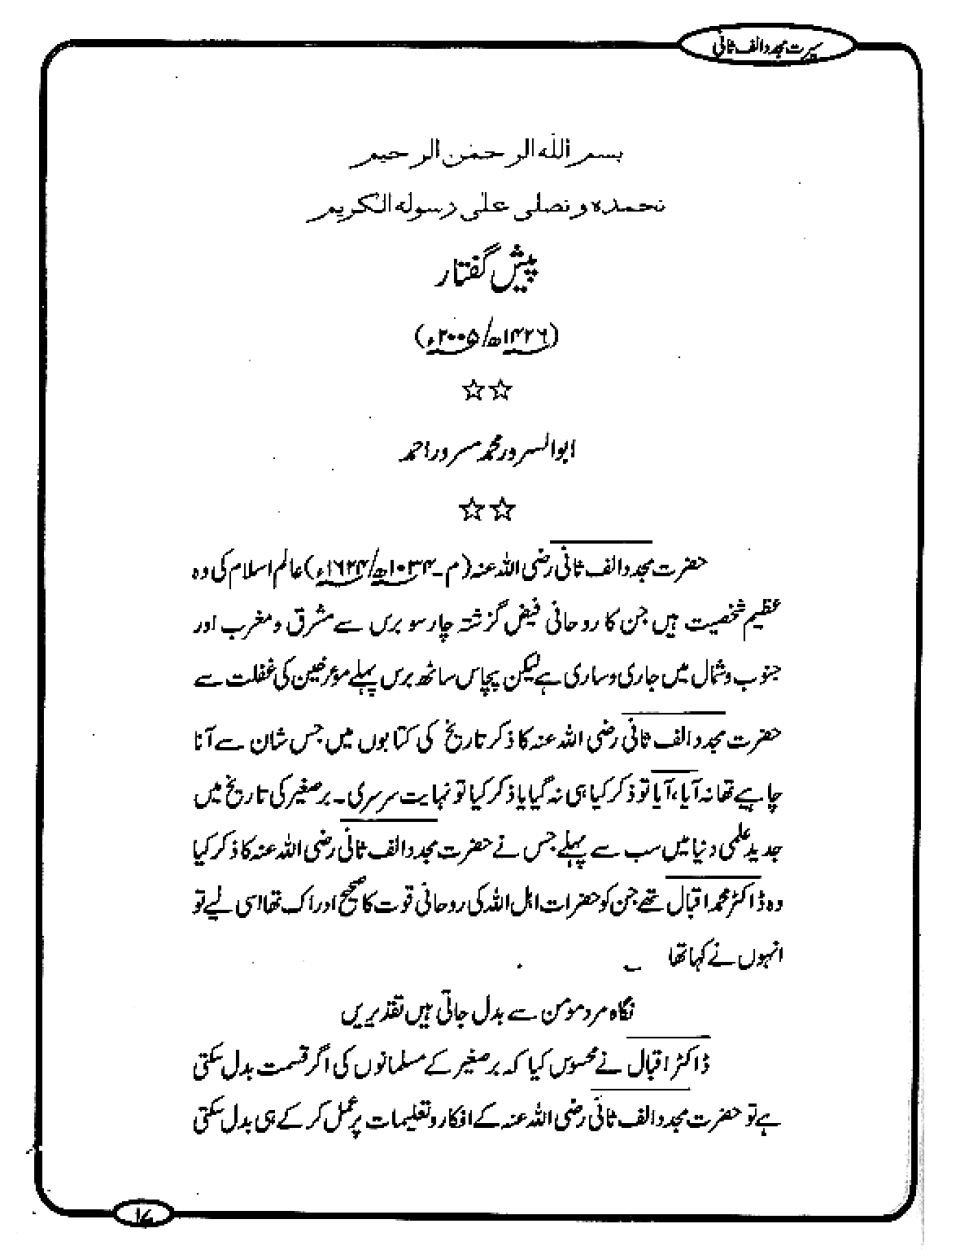 سیرت مجدد الف ثانی
بسم الله الرحمن الرحيم
نحمده ونصلی علی رسوله الکریم
پیش گفتار
(۱۴۲۶ھ/۲۰۰۵ء)
☆☆
ابوالسرور محمد مسرور احمد
☆☆
حضرت مجدد الف ثانی رضی اللہ عنہ (م۔۱۰۳۴ھ/۱۶۲۴ء) عالم اسلام کی وہ
عظیم شخصیت ہیں جن کا روحانی فیض گزشتہ چار سو برس سے مشرق و مغرب اور
جنوب و شمال میں جاری و ساری ہے لیکن پچاس ساٹھ برس پہلے مؤرخین کی غفلت سے
حضرت مجدد الف ثانی رضی اللہ عنہ کا ذکر تاریخ کی کتابوں میں جس شان سے آنا
چاہیے تھا نہ آیا، آیا تو ذکر کیا ہی نہ گیا یا ذکر کیا تو نہایت سرسری۔ برصغیر کی تاریخ میں
جدید علمی دنیا میں سب سے پہلے جس نے حضرت مجدد الف ثانی رضی اللہ عنہ کا ذکر کیا
وہ ڈاکٹر محمد اقبال تھے جن کو حضرات اہل اللہ کی روحانی قوت کا صحیح ادراک تھا اسی لیے تو
انہوں نے کہا تھا
نگاہ مرد مومن سے بدل جاتی ہیں تقدیریں
ڈاکٹر اقبال نے محسوس کیا کہ برصغیر کے مسلمانوں کی اگر قسمت بدل سکتی
ہے تو حضرت مجدد الف ثانی رضی اللہ عنہ کے افکار و تعلیمات پر عمل کر کے ہی بدل سکتی
۱۷